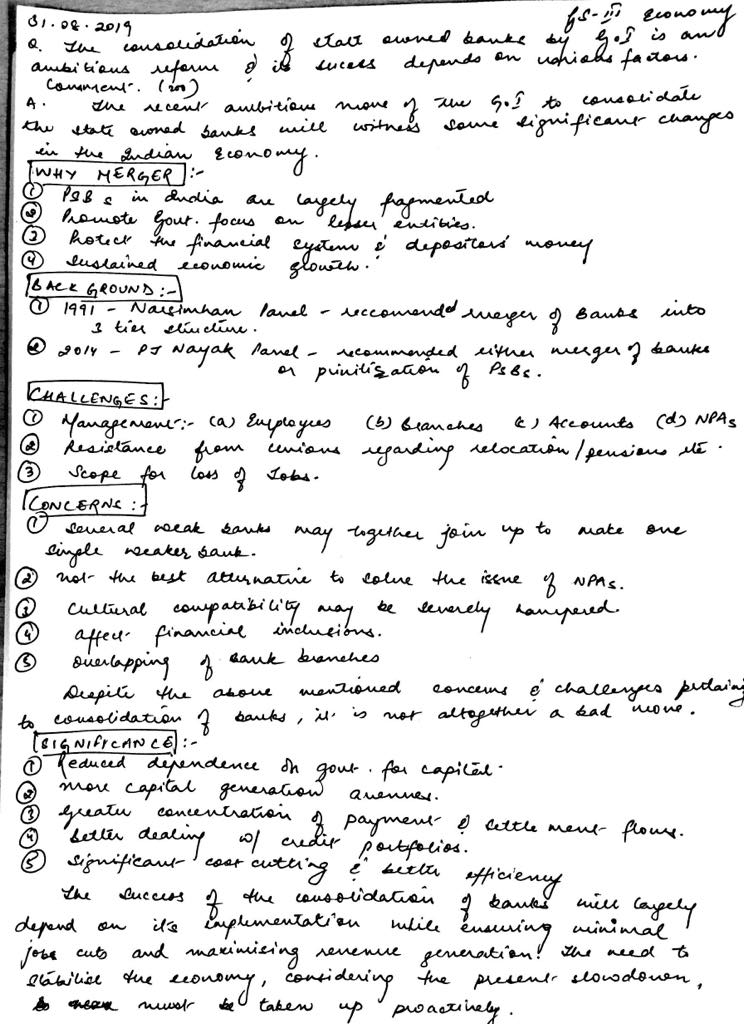 31.08.2019 GS-III Economy
Q. The consolidation of state owned banks by GoI is an
ambitious reform & its sucess depends on various factors.
Comment. (200)
A. The recent ambitious move of the GoI to consolidate
the state owned banks will witness some significant changes
in the Indian Economy.
WHY MERGER :-
① PSBs in India are largely fragmented
② Promote Govt. focus on lesser entities.
③ Protect the financial system & depositors' money
④ Sustained economic growth.
BACKGROUND :-
① 1991 - Narsimhan Panel - reccomended merger of Banks into
3 tier structure.
② 2014 - PJ Nayak Panel - recommended either merger of banks
or privitization of PSBs.
CHALLENGES :-
① Management:- (a) Employees (b) Branches (c) Accounts (d) NPAs
② Resistance from unions regarding relocation/pensions etc.
③ Scope for loss of Jobs.
CONCERNS :-
① Several weak banks may together join up to make one
single weaker bank.
② not the best alternative to solve the issue of NPAs.
③ Cultural compatibility may be severely hampered.
④ affect financial inclusions.
⑤ overlapping of bank branches
Despite the above mentioned concerns & challenges pertaining
to consolidation of banks, it is not altogether a bad move.
SIGNIFICANCE :-
① Reduced dependence on govt. for capital.
② more capital generation avenues.
③ Greater concentration of payment & settlement flows.
④ Better dealing w/ credit portfolios.
⑤ Significant cost cutting & better efficiency
The success of the consolidation of banks will largely
depend on its implementation while ensuring minimal
jobs cuts and maximising revenue generation. The need to
stabilise the economy, considering the present slowdown,
must be taken up proactively.